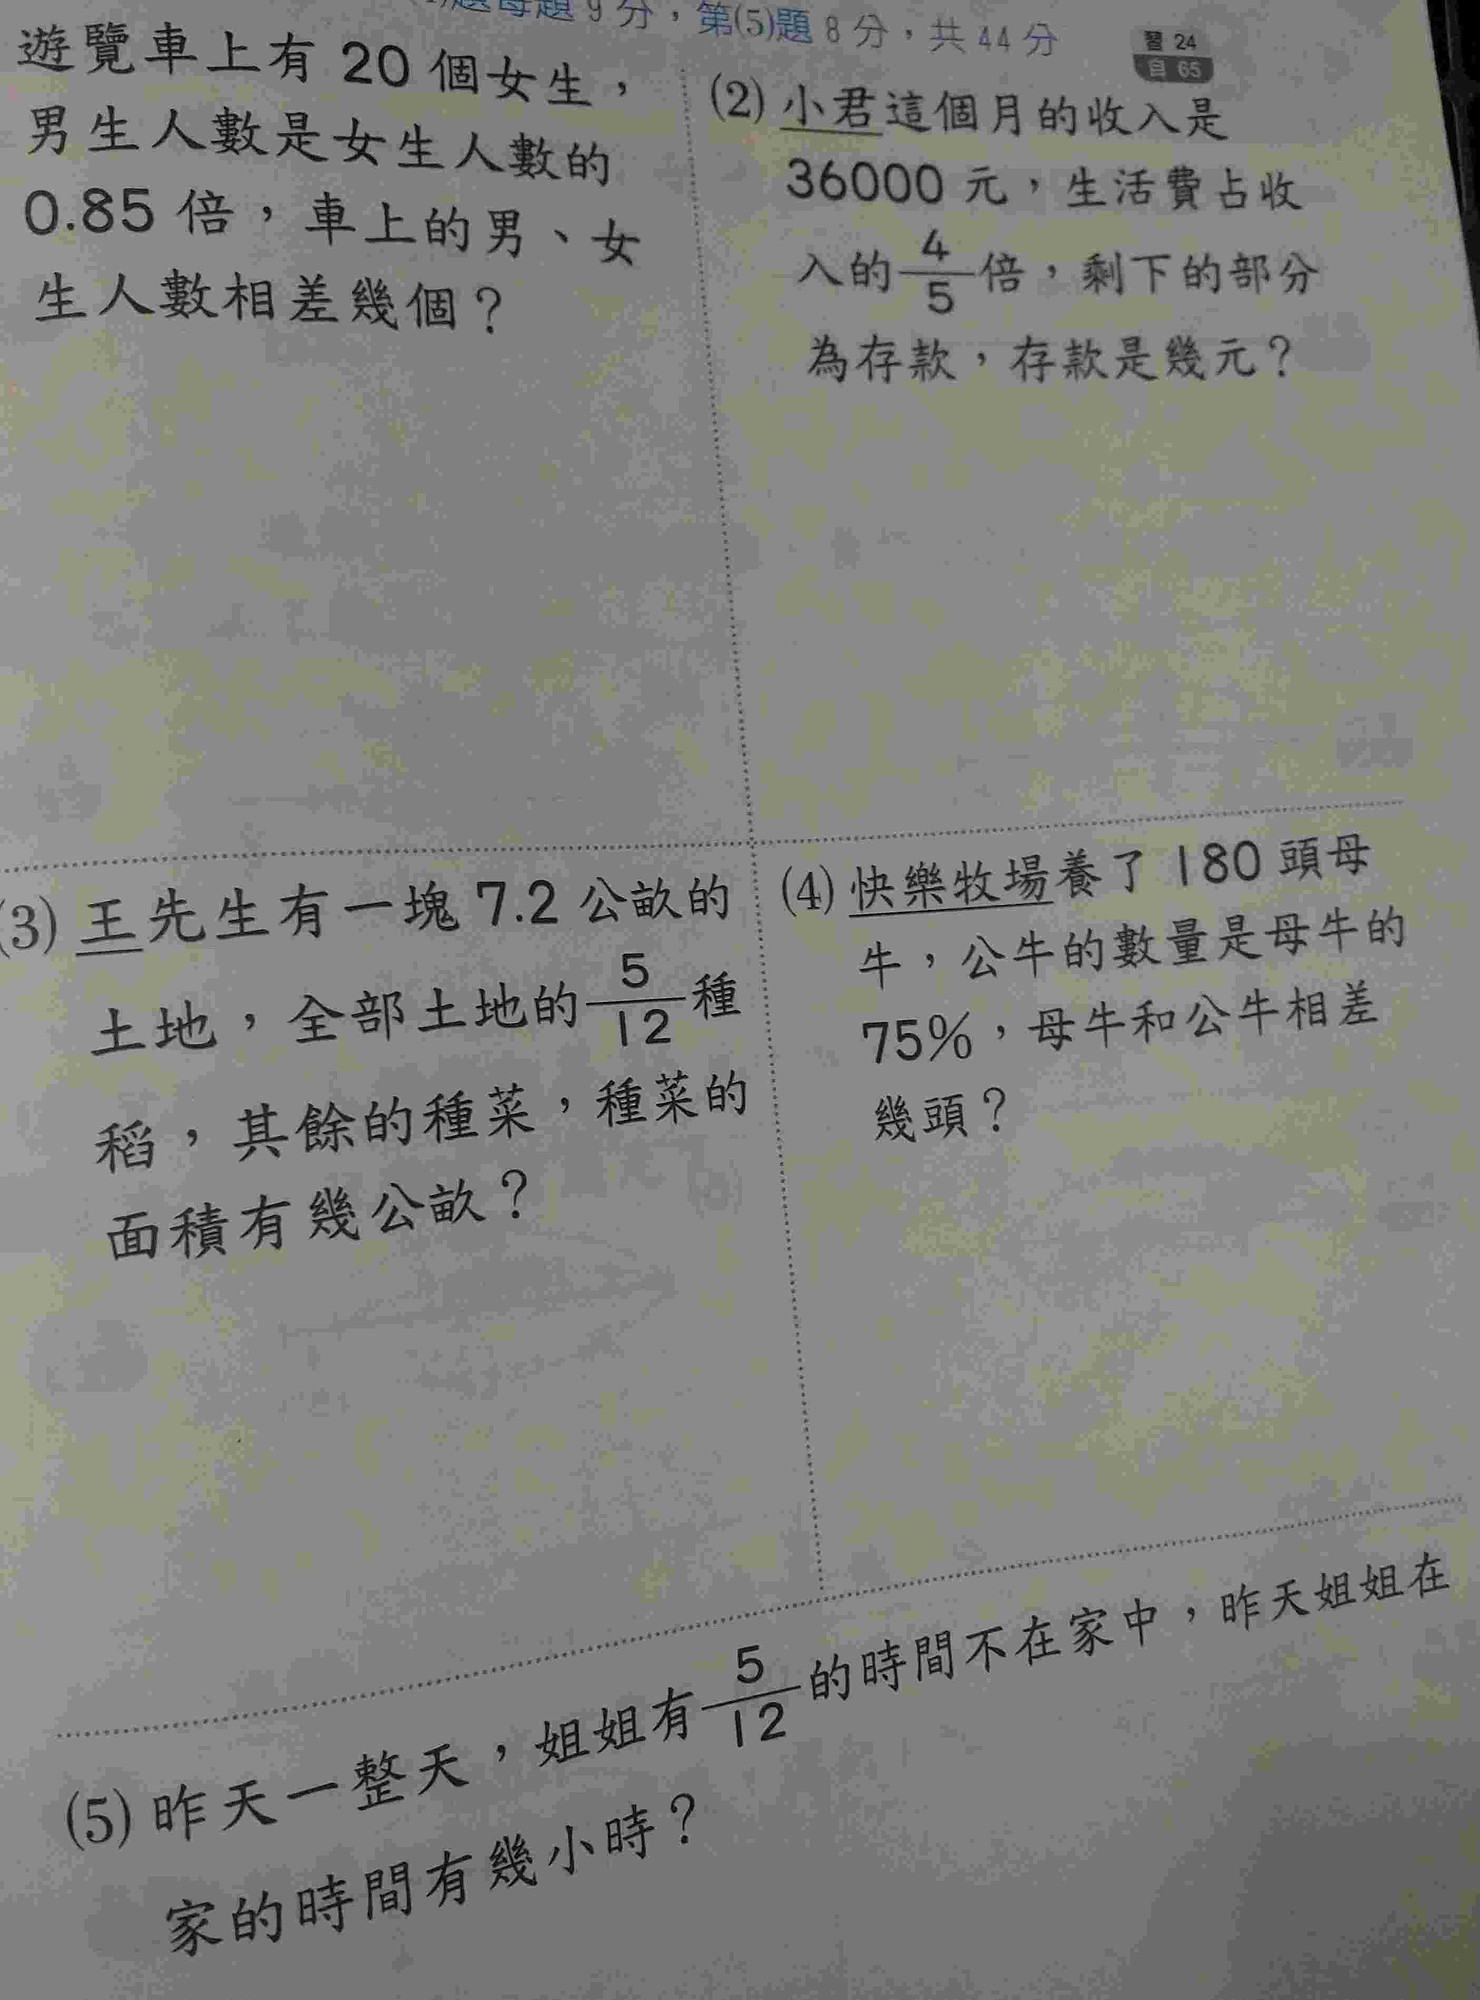 題每題 9 分，第(5)題 8 分，共 44 分
習 24
自 65
遊覽車上有 20 個女生，
男生人數是女生人數的
0.85 倍，車上的男、女
生人數相差幾個？
(2) 小君這個月的收入是
36000 元，生活費占收
入的 4/5 倍，剩下的部分
為存款，存款是幾元？
(3) 王先生有一塊 7.2 公畝的
土地，全部土地的 5/12 種
稻，其餘的種菜，種菜的
面積有幾公畝？
(4) 快樂牧場養了 180 頭母
牛，公牛的數量是母牛的
75%，母牛和公牛相差
幾頭？
(5) 昨天一整天，姐姐有 5/12 的時間不在家中，昨天姐姐在
家的時間有幾小時？